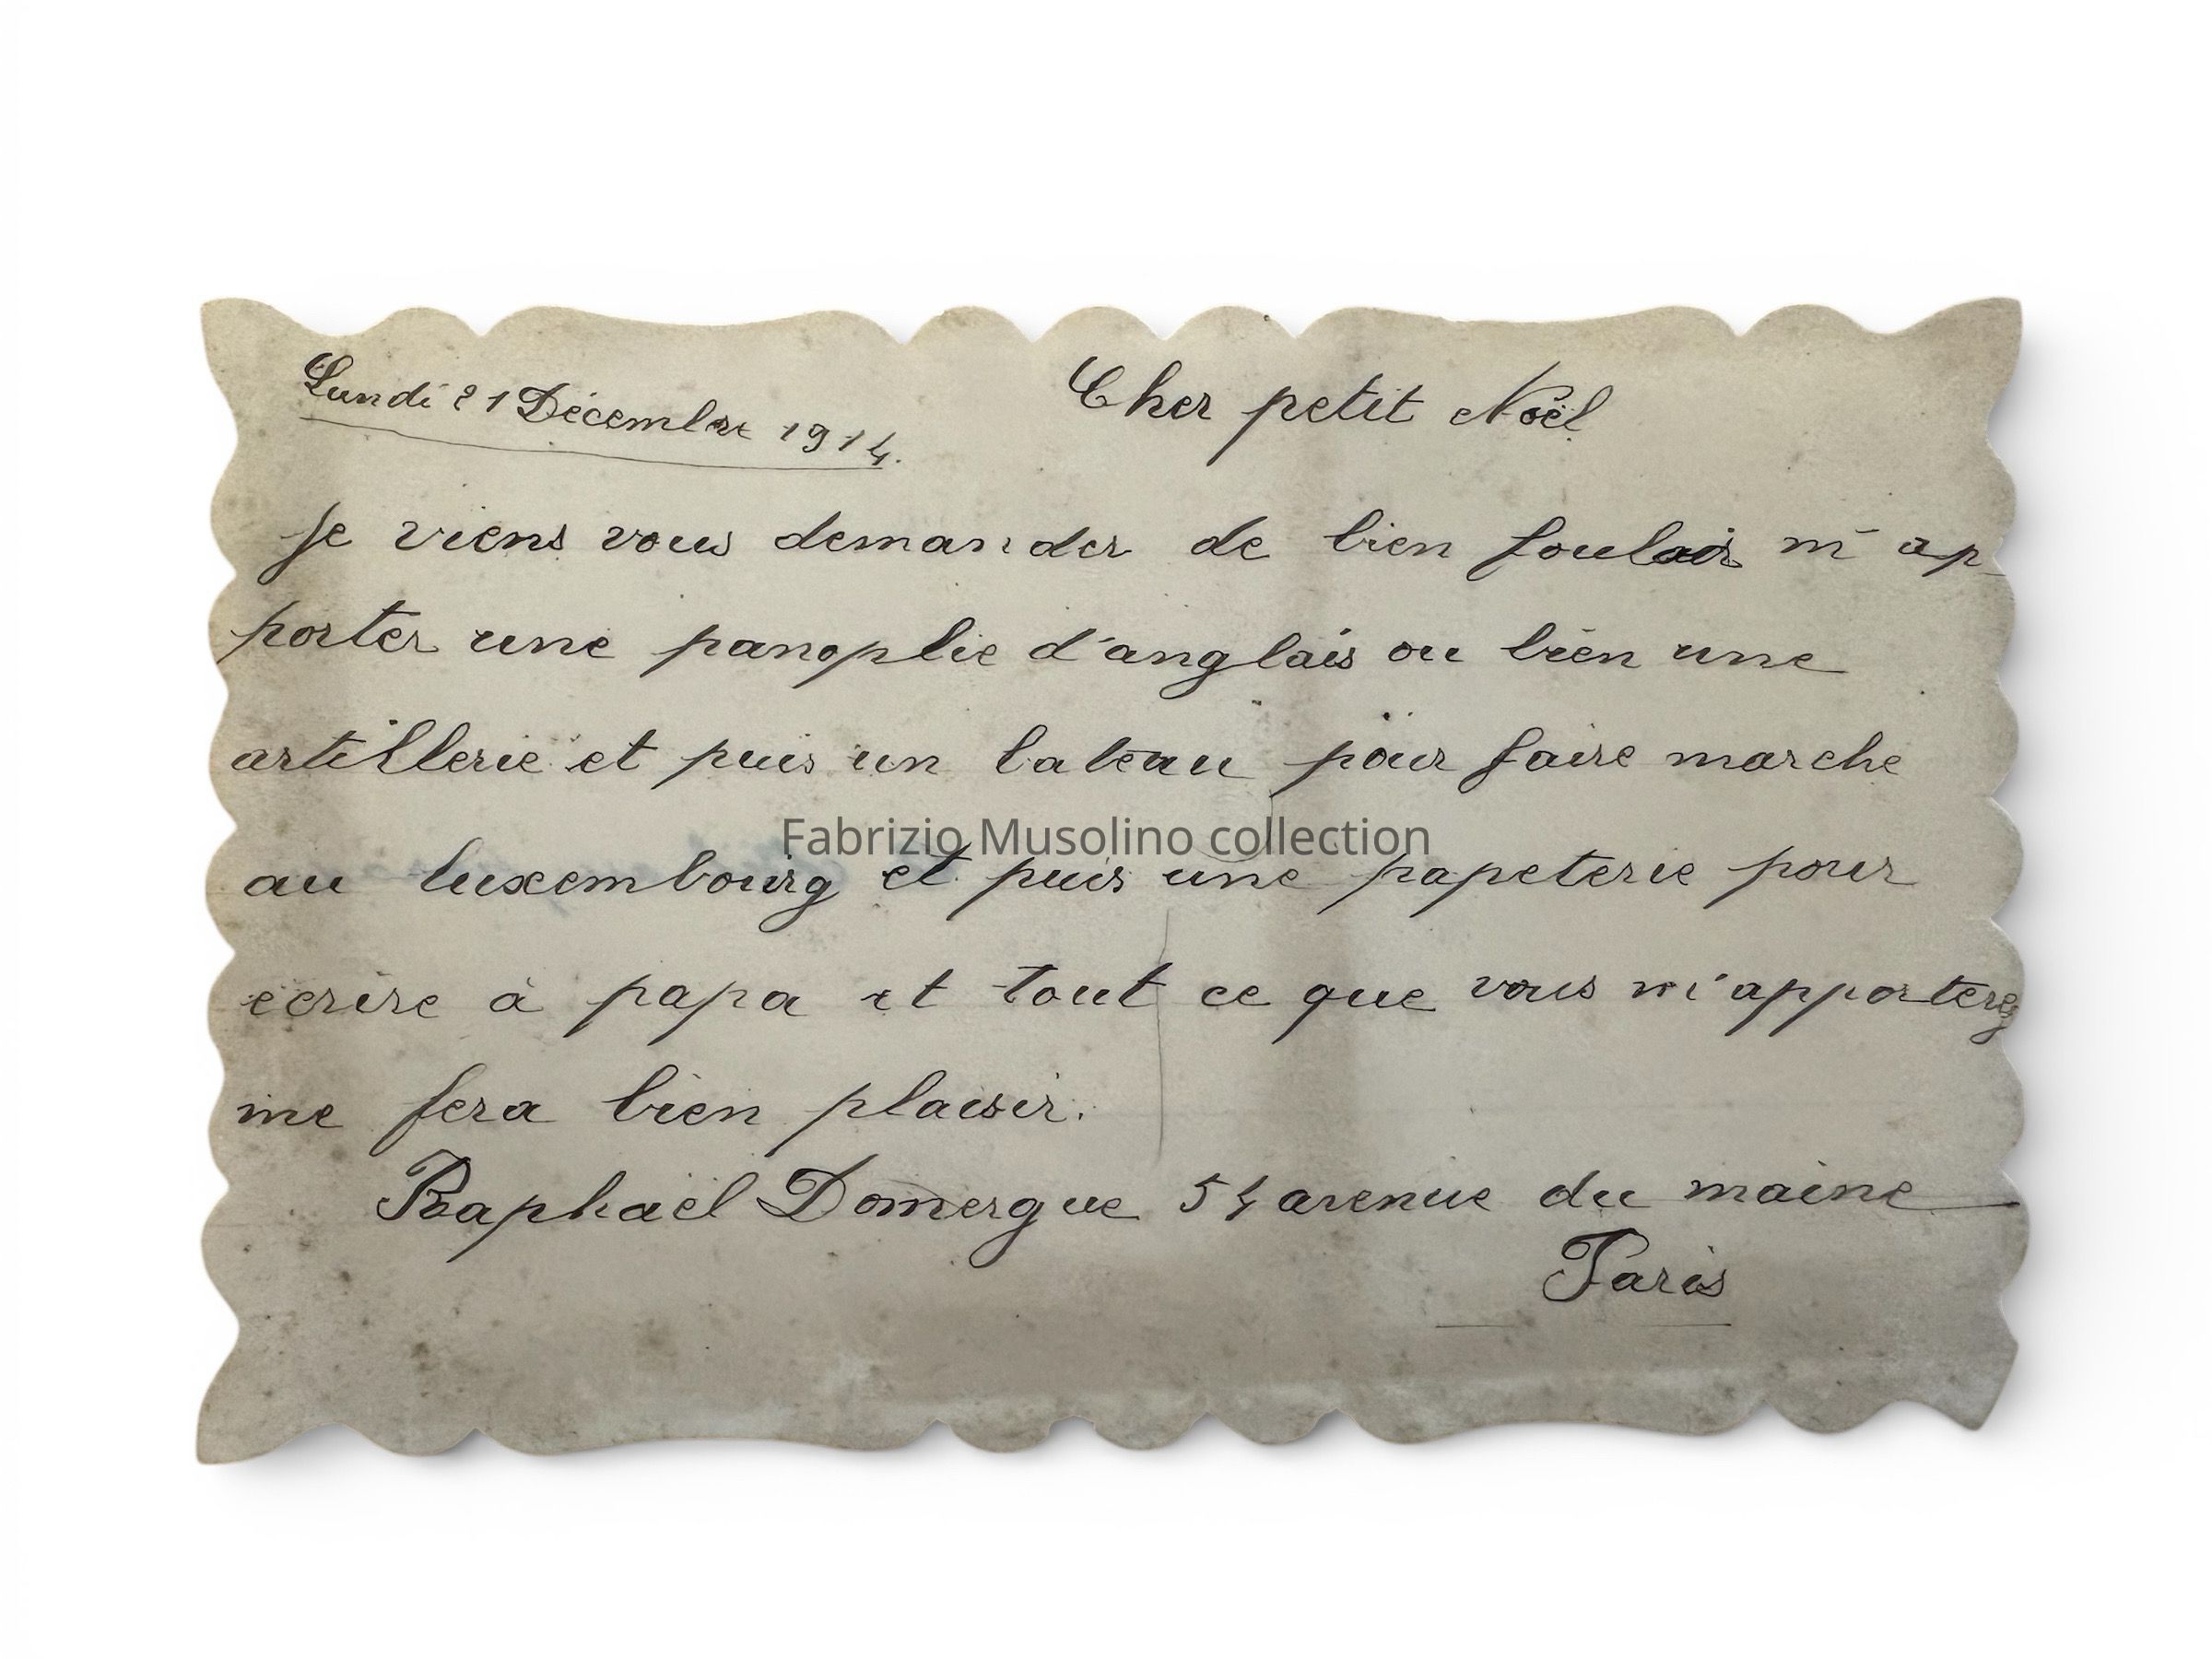 Lundi 21 Décembre 1914.
Cher petit Noël
Je viens vous demander de bien fouloir m'ap-
porter une panoplie d'anglais ou bien une
artillerie et puis un bateau pour faire marche
Fabrizio Musolino collection
au luxembourg et puis une papeterie pour
écrire à papa et tout ce que vous m'apporterez
me fera bien plaisir.
Raphaël Domergue 54 avenue du maine
Paris